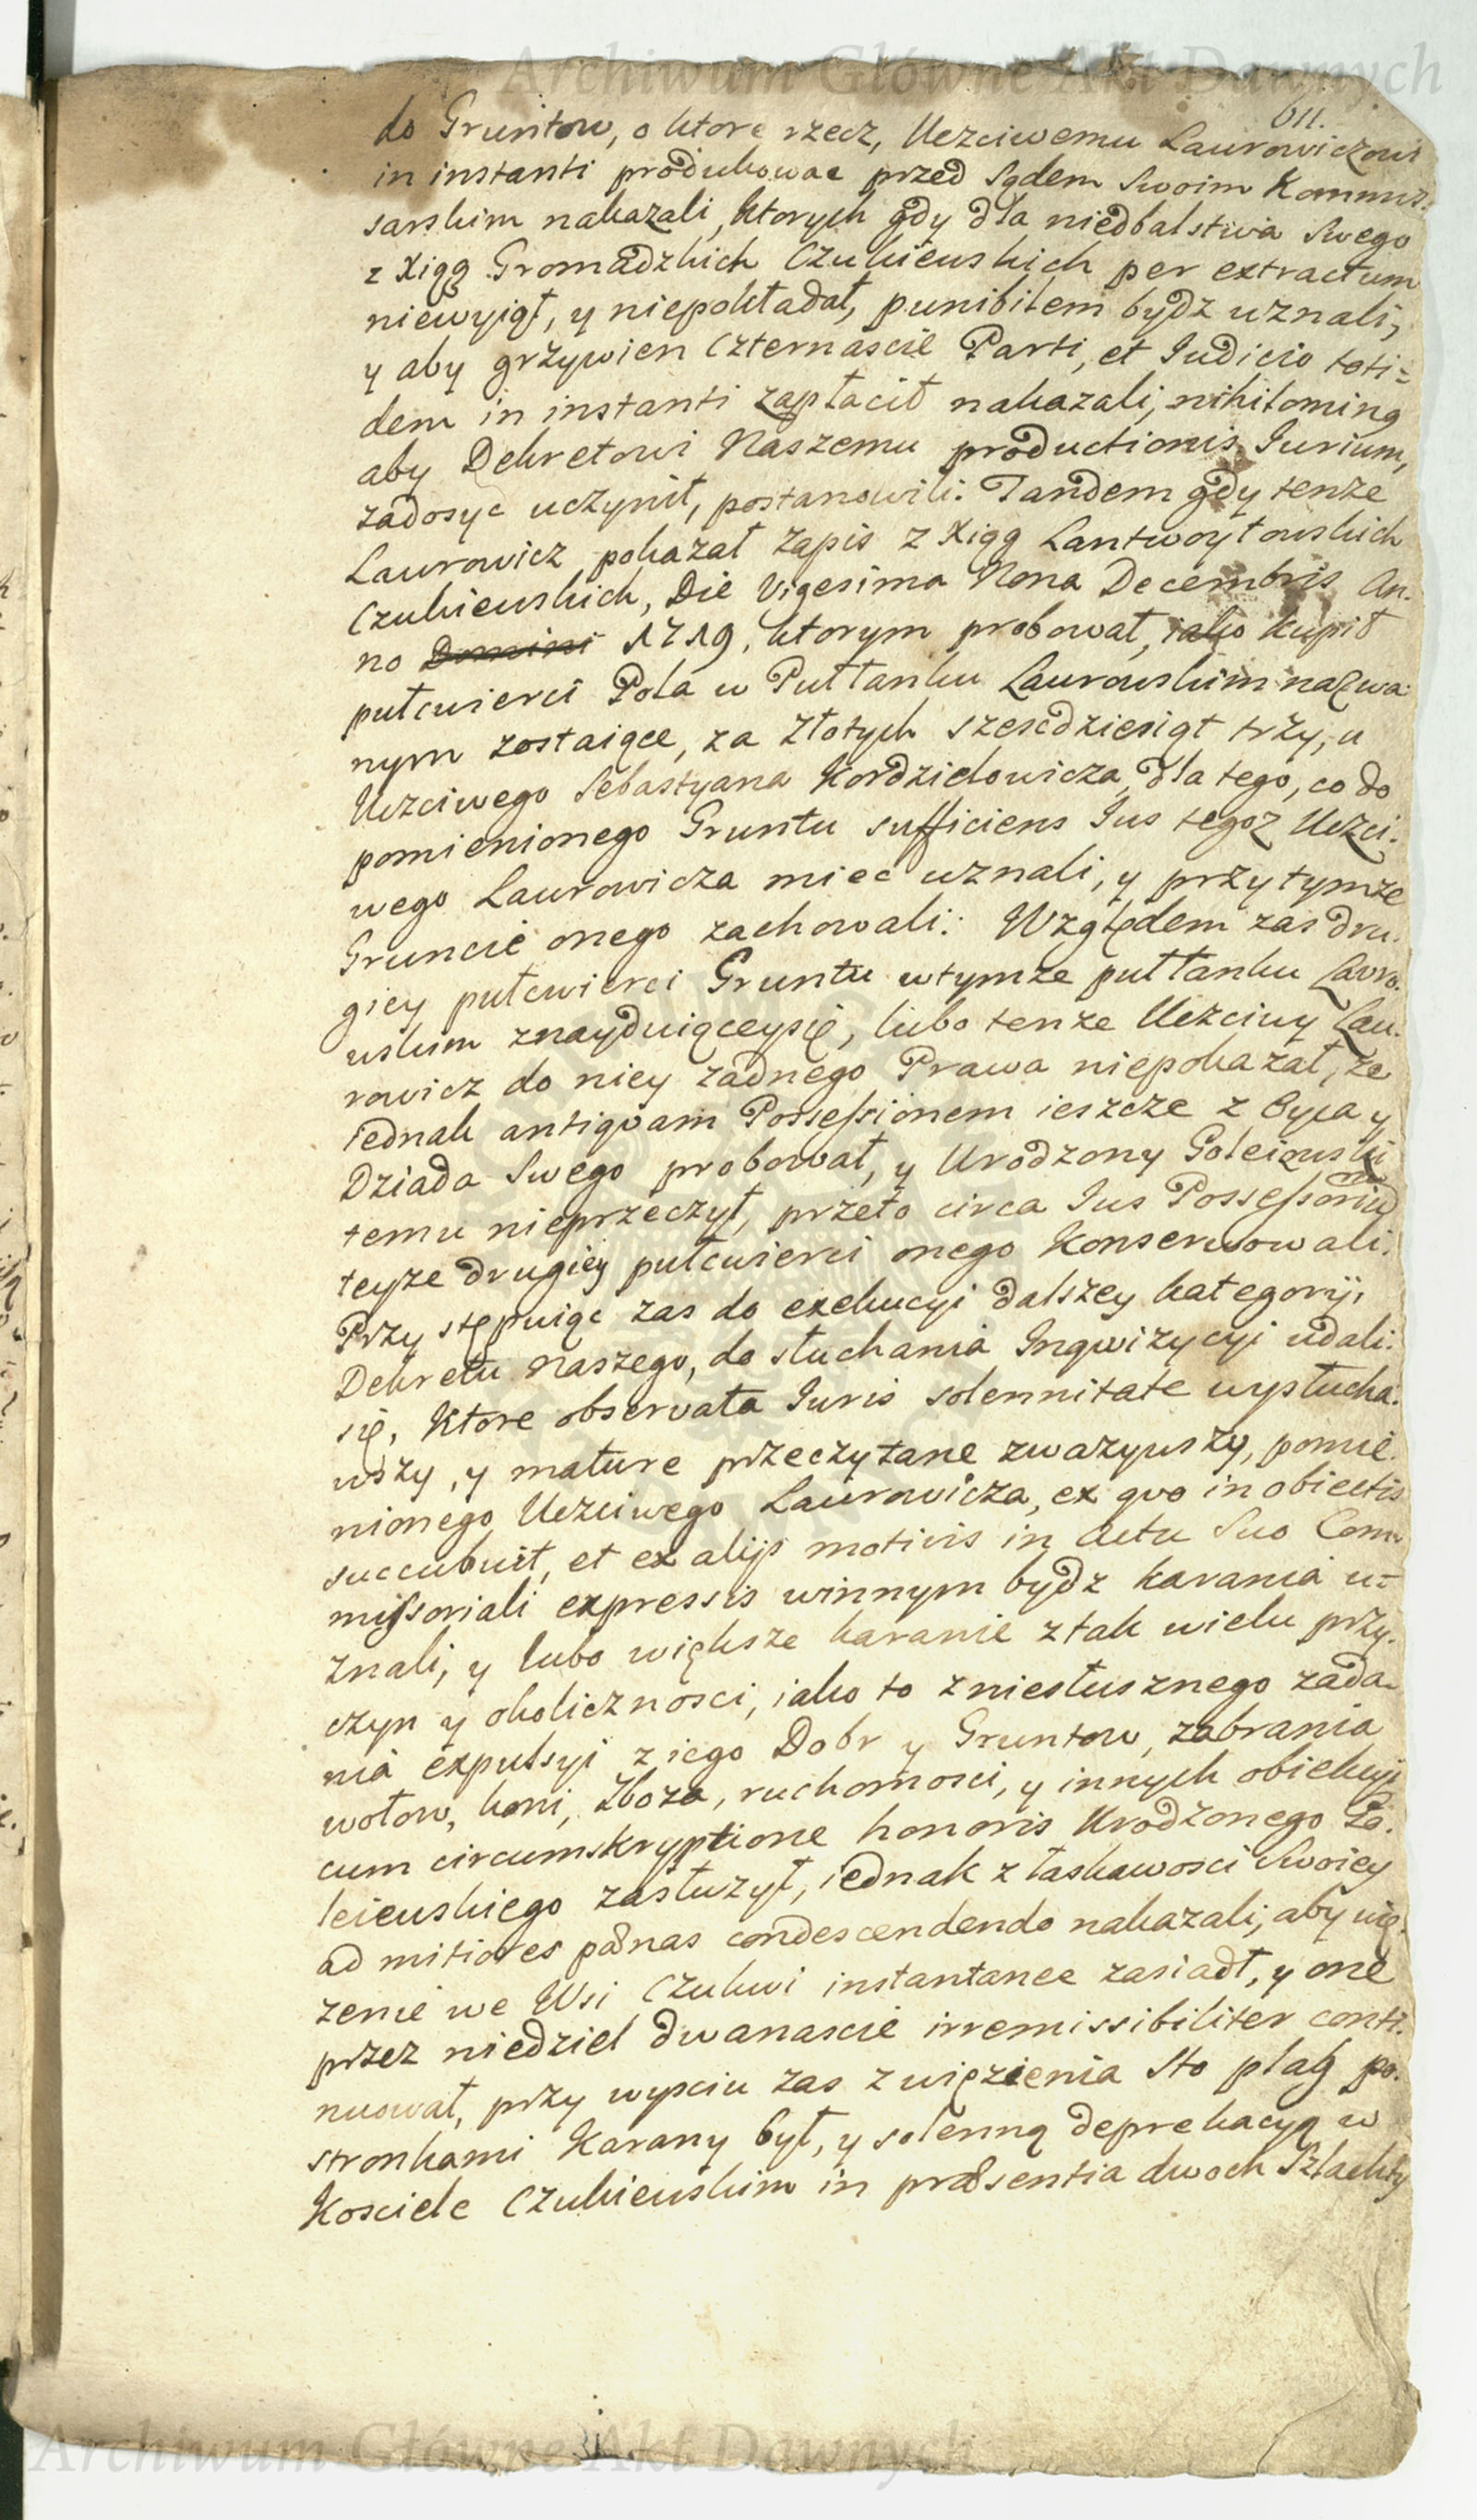 Archiwum Główne Akt Dawnych
611.
do Gruntow, o ktore rzecz, Uczciwemu Laurowiczowi
in instanti produkowac przed Sądem Swoim Kommis-
sarskim nakazali, ktorych gdy dla niedbalstwa Swego
z Xiąg Gromadzkich Czukiewskich per extractum
niewyiął, y niepokładał, punibilem bydz uznali,
y aby grzywien Czternascie Parti, et Iudicio toti=
dem in instanti zapłacił nakazali, nihilominq
aby Dekretowi Naszemu productionis Iurium,
zadosyc uczynił, postanowili: Tandem gdy tenze
Laurowicz pokazał Zapis z Xiąg Lantwoytowskich
Czukiewskich, Die Vigesima Nona Decembris An-
no Domini 1719. ktorym probował, iako kupił
pułcwierci Pola w Pułłanku Laurowskim nazwa-
nym zostaiące, za Złotych szescdziesiąt trzy, u
Uczciwego Sebastyana Kordzielowicza, dla tego, co do
pomienionego Gruntu sufficiens Ius tegoz Uczci-
wego Laurowicza miec uznali, y przy tymze
Gruncie onego zachowali: Względem zas dru-
giey pułcwierci Gruntu wtymze pułłanku Lawro-
wskim znayduiąceysię, lubo tenze Uczciwy Lau-
rowicz do niey zadnego Prawa niepokazał, ze
iednak antiqvam Possessionem ieszcze z Oyca y
Dziada Swego probował, y Urodzony Goleiewski
temu nieprzeczył, przeto circa Ius Possessoriu
teyze drugiey pułcwierci onego Konserwowali.
Przystępuiąc zas do exekucyi dalszey kategoryi,
Dekretu Naszego, do słuchania Inqwizycyi udali
się, Ktore observata Iuris solennitate wysłucha-
wszy, y mature przeczytane zwazywszy, pomie-
nionego Uczciwego Laurowicza, ex qvo in obiectis
succubuit, et ex alijs motivis in Actu Suo Com-
missoriali expressis winnym bydz karania u=
znali, y lubo większe karanie z tak wielu przy-
czyn y okolicznosci, iako to z niesłusznego zada-
nia expulsyi z iego Dobr y Gruntow, zabrania
wołow, koni, Zboza, ruchomosci, y innych obiekcyi
cum circumskryptione honoris Urodzonego Go-
leiewskiego zasłuzył, iednak z łaskawosci Swoiey
ad mitiores pænas condescendendo nakazali, aby wię-
zenie we Wsi Czukwi instantanee zasiadł, y one
przez niedziel dwanascie irremissibiliter conti-
nuował, przy wysciu zas z więzienia Sto plag po-
stronkami Karany był, y solenną deprekacyą w
Kosciele Czukiewskim in præsentia dwoch Szlachty
Archiwum Główne Akt Dawnych